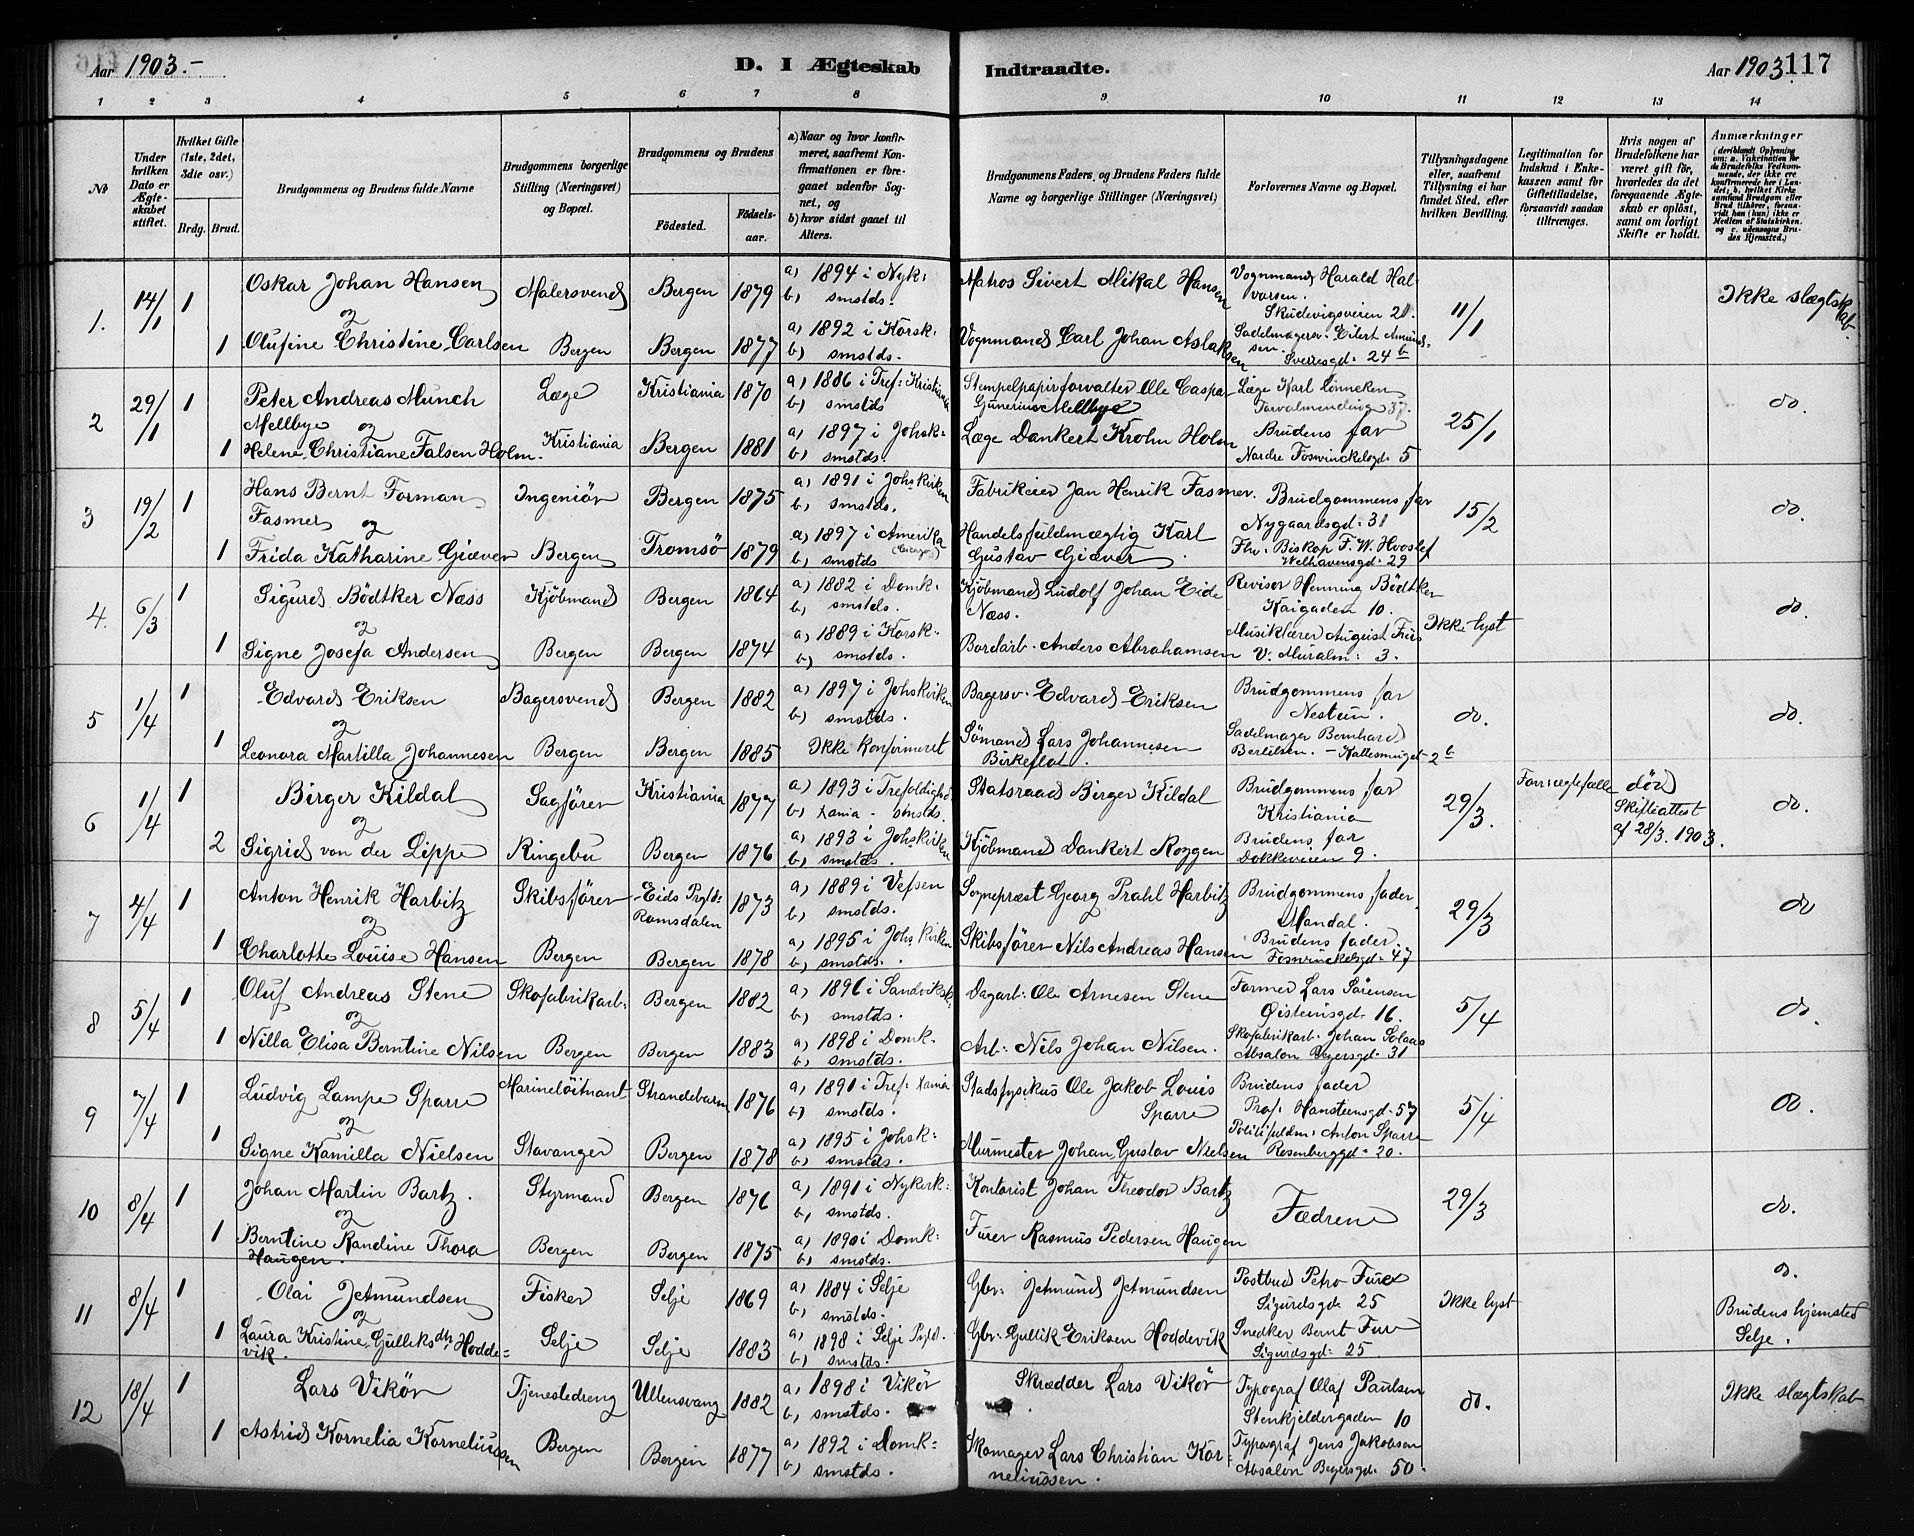 Aar 1903.-
D. I Ægteskab
Indtraadte.
Aar 1903
117
1 2 3 4 5 6 7 8 9 10 11 12 13 14
№
Under hvilken Dato er Ægteskabet stiftet.
Hvilket Gifte (1ste, 2det, 3die osv.)
Brdg. Brud.
Brudgommens og Brudens fulde Navne
Brudgommens borgerlige Stilling (Næringsvei) og Bopæl.
Brudgommens og Brudens
Fødested.
Fødselsaar.
a) Naar og hvor konfirmeret, saafremt Konfirmationen er foregaaet udenfor Sognet, og
b) hvor sidst gaaet til Alters.
Brudgommens Faders og Brudens Faders fulde Navne og borgerlige Stillinger (Næringsvei)
Forlovernes Navne og Bopæl.
Tillysningsdagene eller, saafremt Tillysning ei har fundet Sted, efter hvilken Bevilling.
Legitimation for Indskud i Enkekassen samt for Giftetilladelse, forsaavidt saadan tiltrænges.
Hvis nogen af Brudefolkene har været gift før, hvorledes da det foregaaende Ægteskab er opløst, samt om lovligt Skifte er holdt.
Anmærkninger
(deriblandt Oplysning om: a. Vakcination for de Brudefolks Vedkommende, der ikke ere konfirmerede her i Landet; b. hvilket Kirkesamfund Brudgom eller Brud tilhører, forsaavidt han (hun) ikke er Medlem af Statskirken, og c. udensogns Brudes Hjemsted.)
1. 14/1 1 Oskar Johan Hansen Malersvend Bergen 1879 a) 1894 i Nyk: b) smstds. Matros Sivert Mikal Hansen Vognmand Harald Halvorsen. Skudevigsveien 21. 11/1 Ikke slægtskab.
og
1 Olufine Christine Carlsen Bergen Bergen 1877 a) 1892 i Korsk. b) smstds. Vognmand Carl Johan Aslaksen Sadelmagersv. Eilert Amundsen. Sverresgd: 24 b
2 29/1 1 Peter Andreas Munch Mellbye Læge Kristiania 1870 a) 1886 i Tref: Kristiania b) smstds Stempelpapirforvalter Ole Caspar Gunerius Mellbye Læge Karl Lønneken Torvalmending 37. 25/1 do.
og
1 Helene Christiane Falsen Holm. Kristiania Bergen 1881 a) 1897 i Johsk: b) smstds. Læge Dankert Krohn Holm Brudens far Nordre Foswinckelsgd: 5
3 19/2 1 Hans Bernt Forman Fasmer Ingeniør Bergen 1875 a) 1891 i Johskirken b) smstds. Fabrikeier Jan Henrik Fasmer. Brudgommens far Nygaardsgd: 31 15/2 do.
og
1 Frida Katharine Giæver Bergen Tromsø 1879 a) 1897 i Amerika b) smstds Handelsfuldmægtig Karl Gustav Giæver. Fhv. Biskop F. W. Hvoslef Welhavensgd: 29
4. 6/3 1 Sigurd Bödtker Næss Kjöbmand Bergen 1864 a) 1882 i Domk: b) smstds. Kjöbmand Ludolf Johan Eide Næss. Revisor Henning Bödtker Kaigaden 10. Ikke lyst do.
og
1 Signe Josefa Andersen Bergen Bergen 1874 a) 1889 i Korsk. b) smstds. Bordarb. Anders Abrahamsen Musiklærer August Fries V. Muralm: 3.
5 1/4 1 Edvard Eriksen Bagersvend Bergen 1882 a) 1897 i Johskirken b) smstds. Bagersv. Edvard Eriksen Brudgommens far Nestun. do. do.
og
1 Leonora Martilla Johannesen Bergen Bergen 1885 Ikke konfirmeret Sömand Lars Johannesen Birkeflot. Sadelmager Bernhard Bertelsen. - Kallesmuget 2 b
6 1/4 1 Birger Kildal Sagförer Kristiania 1877 a) 1893 i Trefoldighed b) Xania - smstds. Statsraad Birger Kildal Brudgommens far Kristiania 29/3. Forevistfalle død Skifteattest af 28/3. 1903. do.
og
2 Sigrid von der Lippe Ringebu Bergen 1876 a) 1893 i Johskirken b) smstds. Kjöbmand Dankert Roggen Brudens far Dokkeveien 9.
7 4/4 1 Anton Henrik Harbitz Skibsförer Eids Prgld: Romsdalen 1873 a) 1889 i Vefsen b) smstds. Sognepræst Georg Prahl Harbitz Brudgommens fader. Mandal. 29/3 do
og
1 Charlotte Louise Hansen Bergen Bergen 1878 a) 1895 i Johs kirken b) smstds. Skibsförer Nils Andreas Hansen Brudens fader Foswinckelsgd: 47
8 5/4 1 Oluf Andreas Stene Skofabrikarb. Bergen 1882 a) 1896 i Sandviksk: b) smstds. Dagarb. Ole Arnesen Stene Former Lars Sörensen Øisteinsgd: 16. 5/4 do.
og
1 Nilla Elisa Berntine Nilsen Bergen Bergen 1883 a) 1898 i Domk. b) smstds. Arb: Nils Johan Nilsen. Skofabrikarb. Johan Solaas Absalon Beyersgd: 31
9 7/4 1 Ludvig Lampe Sparre Marinelöitnant Strandebarm 1876 a) 1891 i Tref: Xania b) smstds. Stadsfysikus Ole Jakob Louis Sparre Brudens fader Prof. Hansteensgd: 57 5/4 do.
og
1 Signe Kamilla Nielsen Stavanger Bergen 1878 a) 1895 i Johsk: b) smstds. Murmester Johan Gustav Nielsen Politifuldm: Anton Sparre Rosenberggd: 20.
10 8/4 1 Johan Martin Bartz. Styrmand Bergen 1876 a) 1891 i Nykirk: b) smstds. Kontorist Johan Theodor Bartz Fædrene 29/3 do.
og
1 Berntine Randine Thora Haugen. Bergen Bergen 1875 a) 1890 i Domk: b) smstds. Furer Rasmus Pedersen Haugen
11 8/4 1 Olai Jetmundsen Fisker Selje 1869 a) 1884 i Selje b) smstds. Gbr: Jetmund Jetmundsen Postbud Petro Furex Sigurdsgd: 25 Ikke lyst do. Brudens hjemsted Selje.
og
1 Laura Kristine Gulliksdtr Hoddevik. Selje Selje 1883 a) 1898 i Selje Prgld. b) smstds. Gbr: Gullik Eriksen Hoddevik Snedker Bernt Fure Sigurdsgd: 25
12 18/4 1 Lars Vikör Tjenestedreng Ullensvang 1882 a) 1898 i Vikör b) smstds. Skrædder Lars Vikör Typograf Olaf Paulsen Stenkjeldergaden 10 do. Ikke slægtskab
1 Astrid Kornelia Korneliussen Bergen Bergen 1877 a) 1892 i Domk: b) smstds. Skomager Lars Christian Korneliussen. Typograf Jens Jakobsen Absalon Beyersgd: 50.